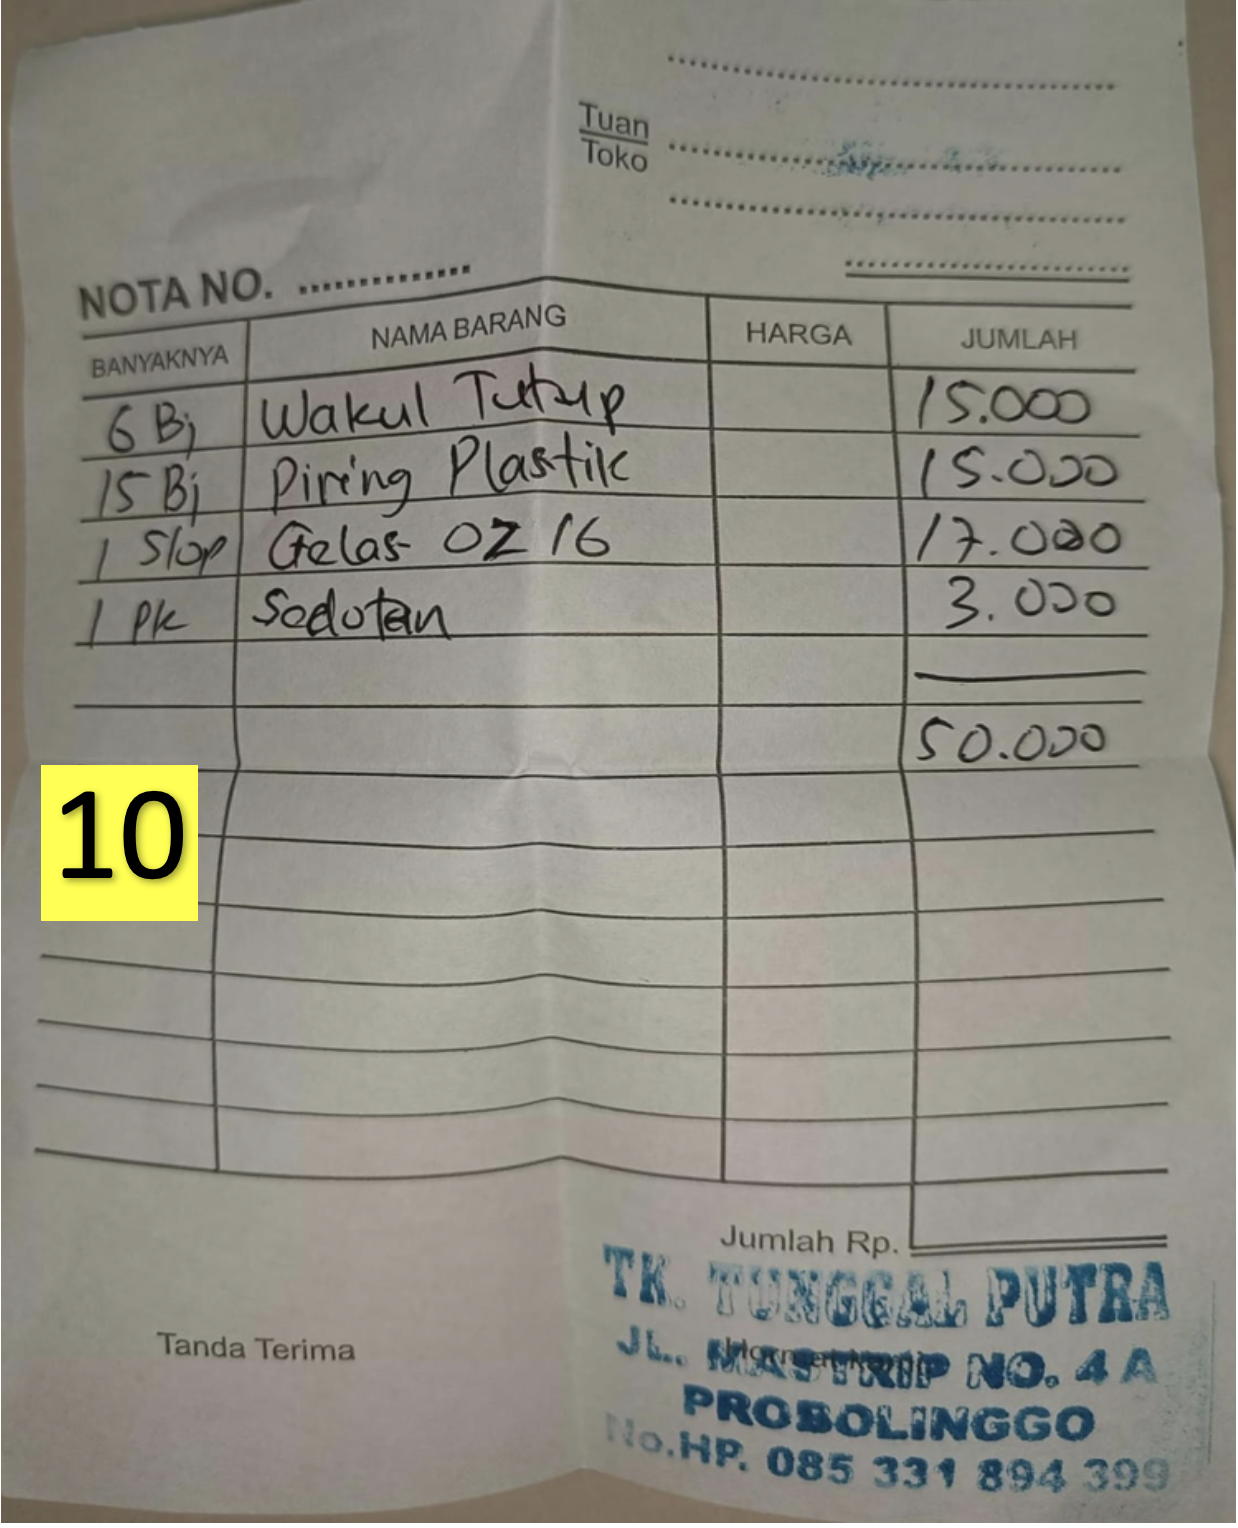 Tuan
Toko
NOTA NO. .............
BANYAKNYA NAMA BARANG HARGA JUMLAH
6 Bj Wakul Tutup 15.000
15 Bj Piring Plastik 15.000
1 Slop Gelas OZ 16 17.000
1 Pk Sedotan 3.000
50.000
10
Jumlah Rp.
TK. TUNGGAL PUTRA
Tanda Terima Hormat kami
JL. MASTRIP NO. 4 A
PROBOLINGGO
No.HP. 085 331 894 399